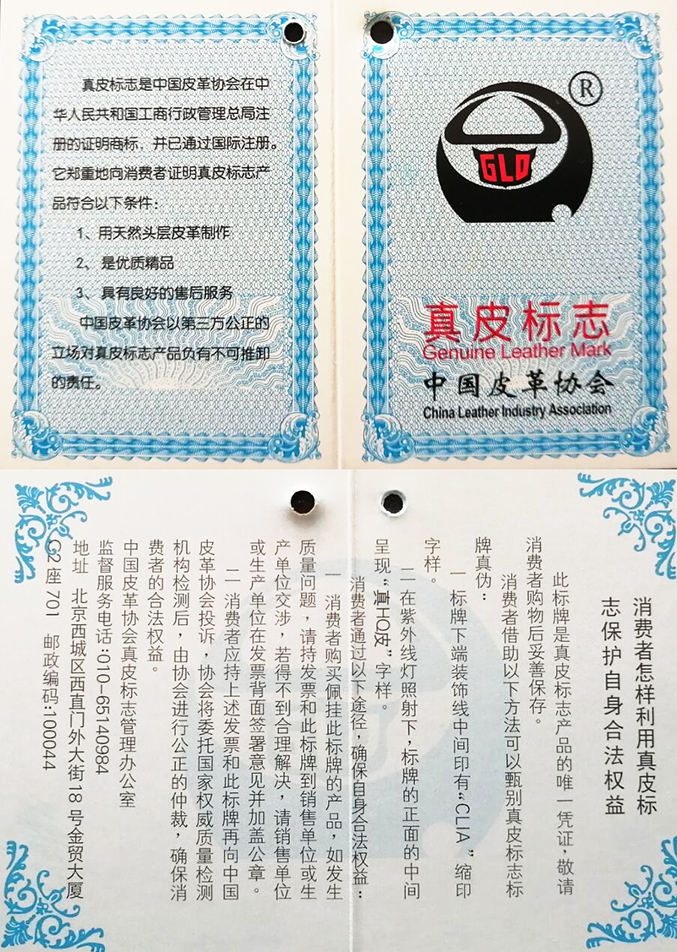 真皮标志是中国皮革协会在中
华人民共和国工商行政管理总局注
册的证明商标，并已通过国际注册。
它郑重地向消费者证明真皮标志产
品符合以下条件：
1、用天然头层皮革制作
2、是优质精品
3、具有良好的售后服务
中国皮革协会以第三方公正的
立场对真皮标志产品负有不可推卸
的责任。
®
GLD
真皮标志
Genuine Leather Mark
中国皮革协会
China Leather Industry Association
消费者怎样利用真皮标
志保护自身合法权益
此标牌是真皮标志产品的唯一凭证，敬请
消费者购物后妥善保存。
消费者借助以下方法可以甄别真皮标志标
牌真伪：
一 标牌下端装饰线中间印有“CLIA”缩印
字样。
二 在紫外线灯照射下，标牌的正面的中间
呈现“真HQ皮”字样。
消费者通过以下途径，确保自身合法权益：
一 消费者购买佩挂此标牌的产品，如发生
质量问题，请持发票和此标牌到销售单位或生
产单位交涉，若得不到合理解决，请销售单位
或生产单位在发票背面签署意见并加盖公章。
二 消费者应持上述发票和此标牌再向中国
皮革协会投诉，协会将委托国家权威质量检测
机构检测后，由协会进行公正的仲裁，确保消
费者的合法权益。
中国皮革协会真皮标志管理办公室
监督服务电话:010-65140984
地址 北京西城区西直门外大街18号金贸大厦
C2座701 邮政编码:100044